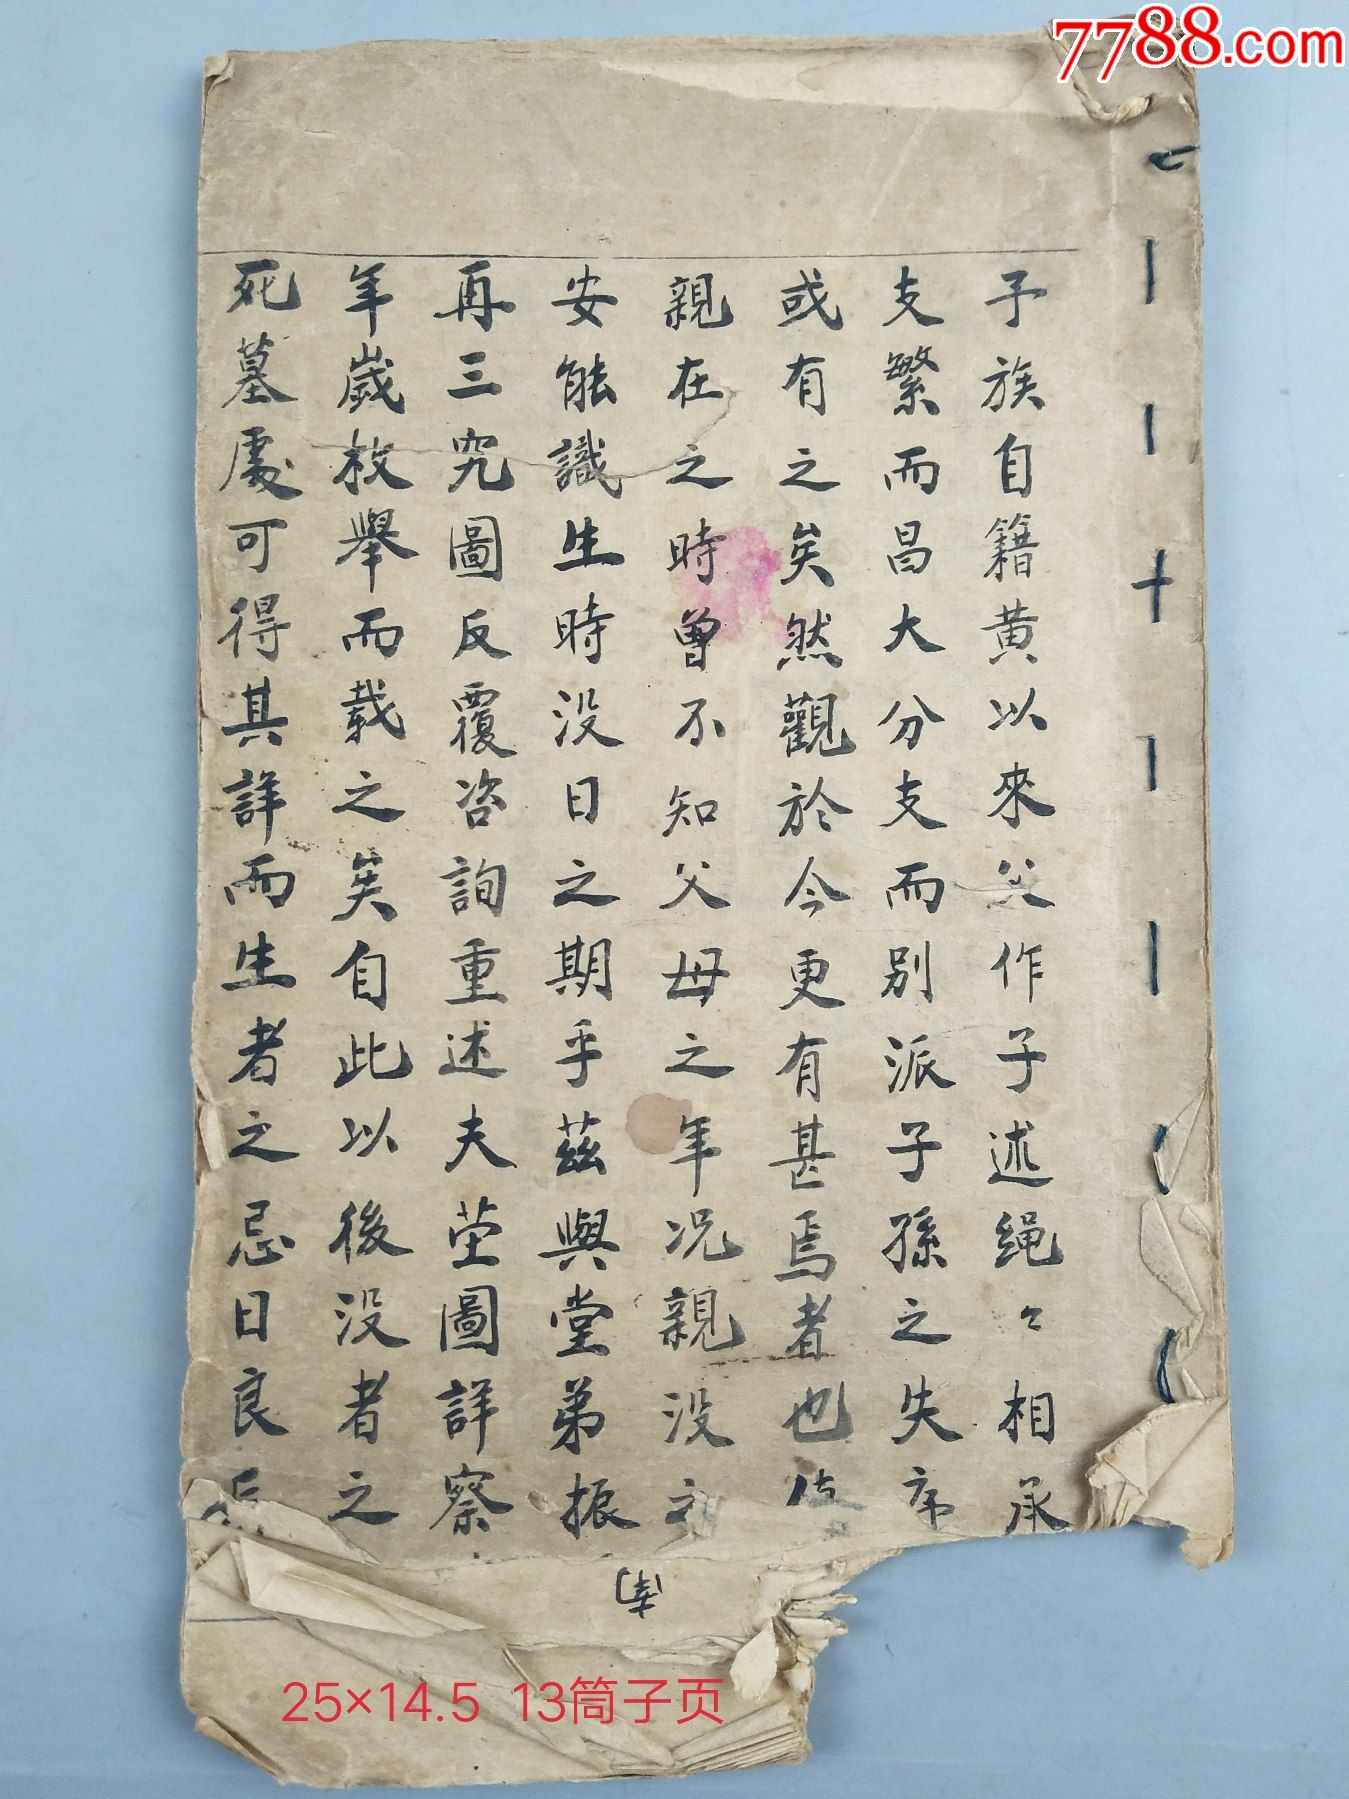 7788.com
予族自籍黄以來父作子述绳々相承
支繁而昌大分支而别派子孫之失序
或有之矣然觀於今更有甚焉者也
親在之時曾不知父母之年况親没之
安能識生時没日之期乎茲與堂弟振
再三究圖反覆咨詢重述夫茔圖詳察
年歲枚舉而载之矣自此以後没者之
死墓處可得其詳而生者之忌日良
25×14.5 13筒子页